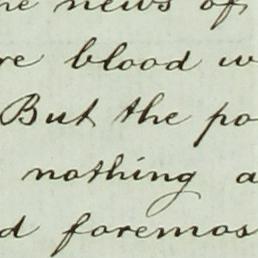 he news of
re blood w
But the po
nothing a
d foremos